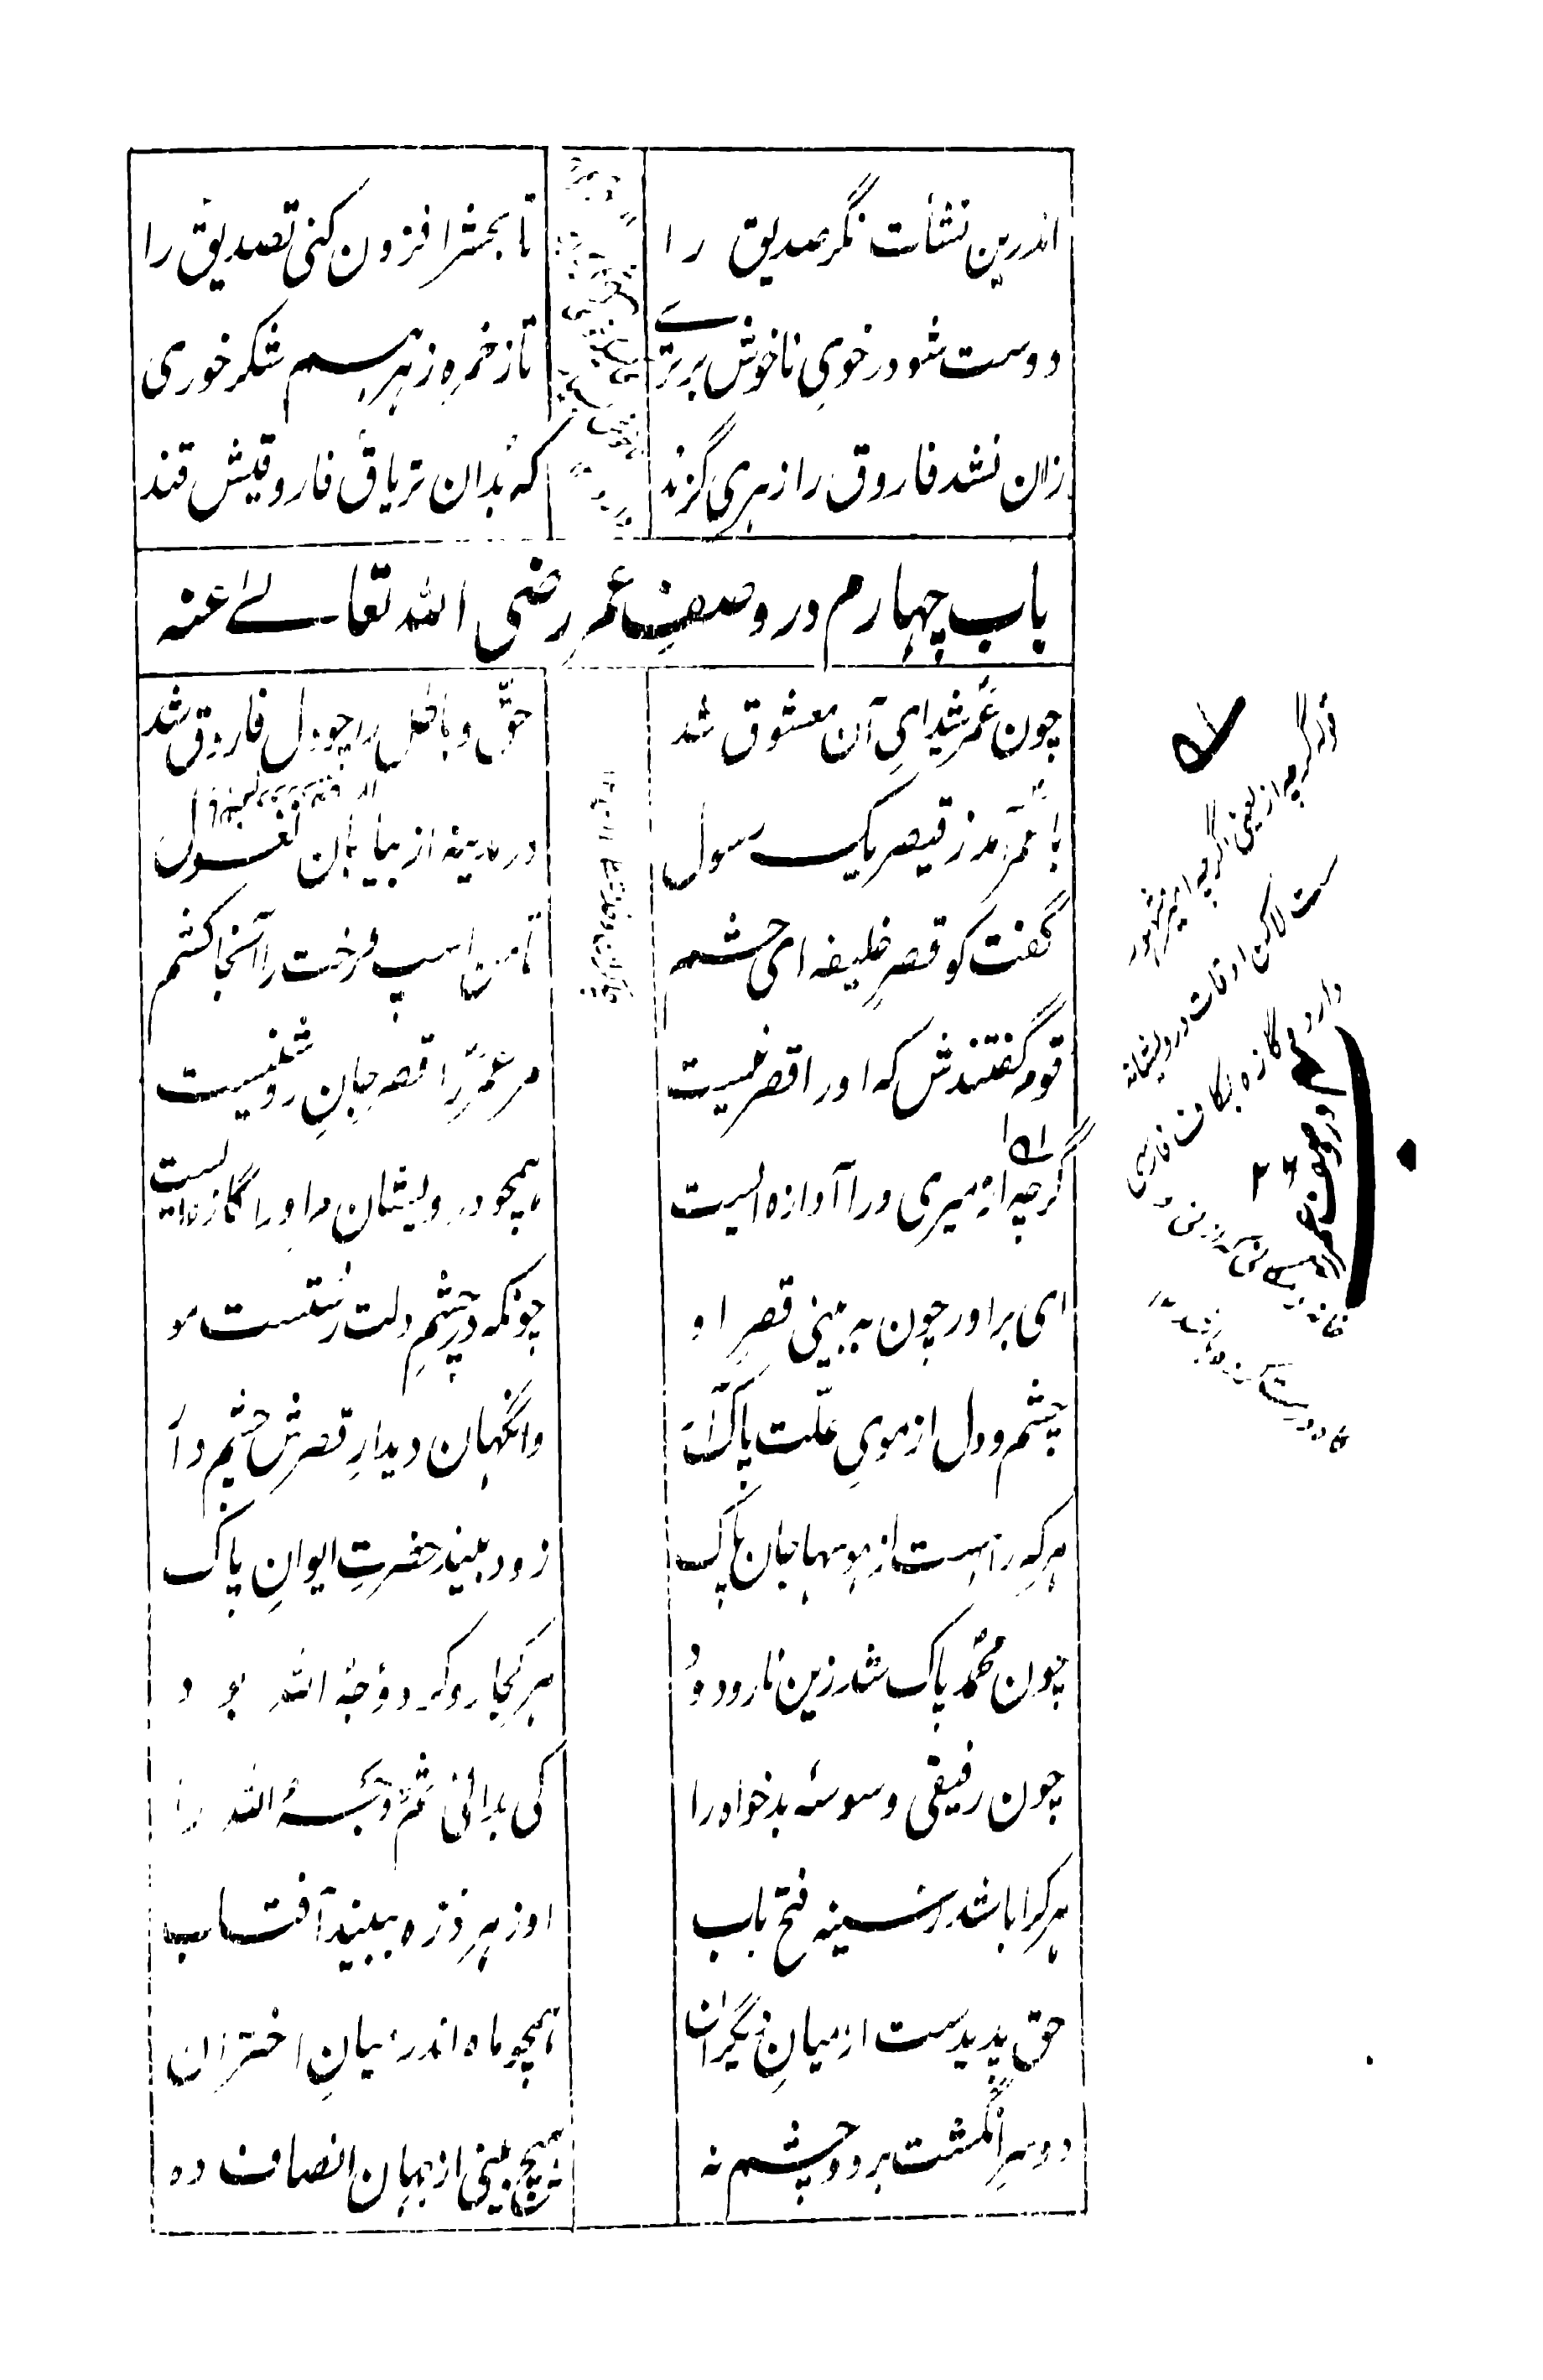 اندرین نشأت نگر صدیق را تا بحشر افزون کنی تصدیق را
دوست شو در خویِ ناخوش بر ترے تا ز خمرهٔ زهر هم شکر خوری
زان نشد فاروق را زهری گزند که بُدان تریاق فاروقیش قند
باب چهارم در وصفِ عمر رضی الله تعالے عنه
چون عُمر شیدایِ آن معشوق شد حقّ و باطل را چو دل فاروق شد
با عُمر آمد ز قیصر یک رسول در مدینه از بیابان نغول
گفت کو قصرِ خلیفه ای حشم تا من اسپ و رخت را آنجا کشم
قوم گفتندش که او را قصر نیست مر عمر را قصر جانِ روشنیست
گرچه از میری ورا آوازه ایست همچو درویشان مر او را گازه ایست
ای برادر چون به بینی قصرِ او چونکه در چشمِ دلت رُستست مو
چشم و دل از مویِ علّت پاک آر وانگهان دیدارِ قصرش چشم دار
هر که را هست از هوسها جان پاک زود بیند حضرتِ ایوانِ پاک
چون محمّد پاک شد زین نار و دود هر کجا رو کرد وَجهُ الله بود
چون رفیقی وسوسهٔ بدخواه را کی بدانی ثَمَّ وَجهُ الله را
هر کرا باشد ز سینه فتح باب او ز هر ذرّه ببیند آفتاب
حق پدیدست از میانِ دیگران همچو ماه اندر میانِ اختران
دو سرِ انگشت بر دو چشم نه هیچ بینی از جهان انصاف ده
قوله گرچه از یعنی اگرچه امیر مشهور
ست لاکن اوقات درویشانه
دارد گازه بکاف فارسی
در وصف عمر رض